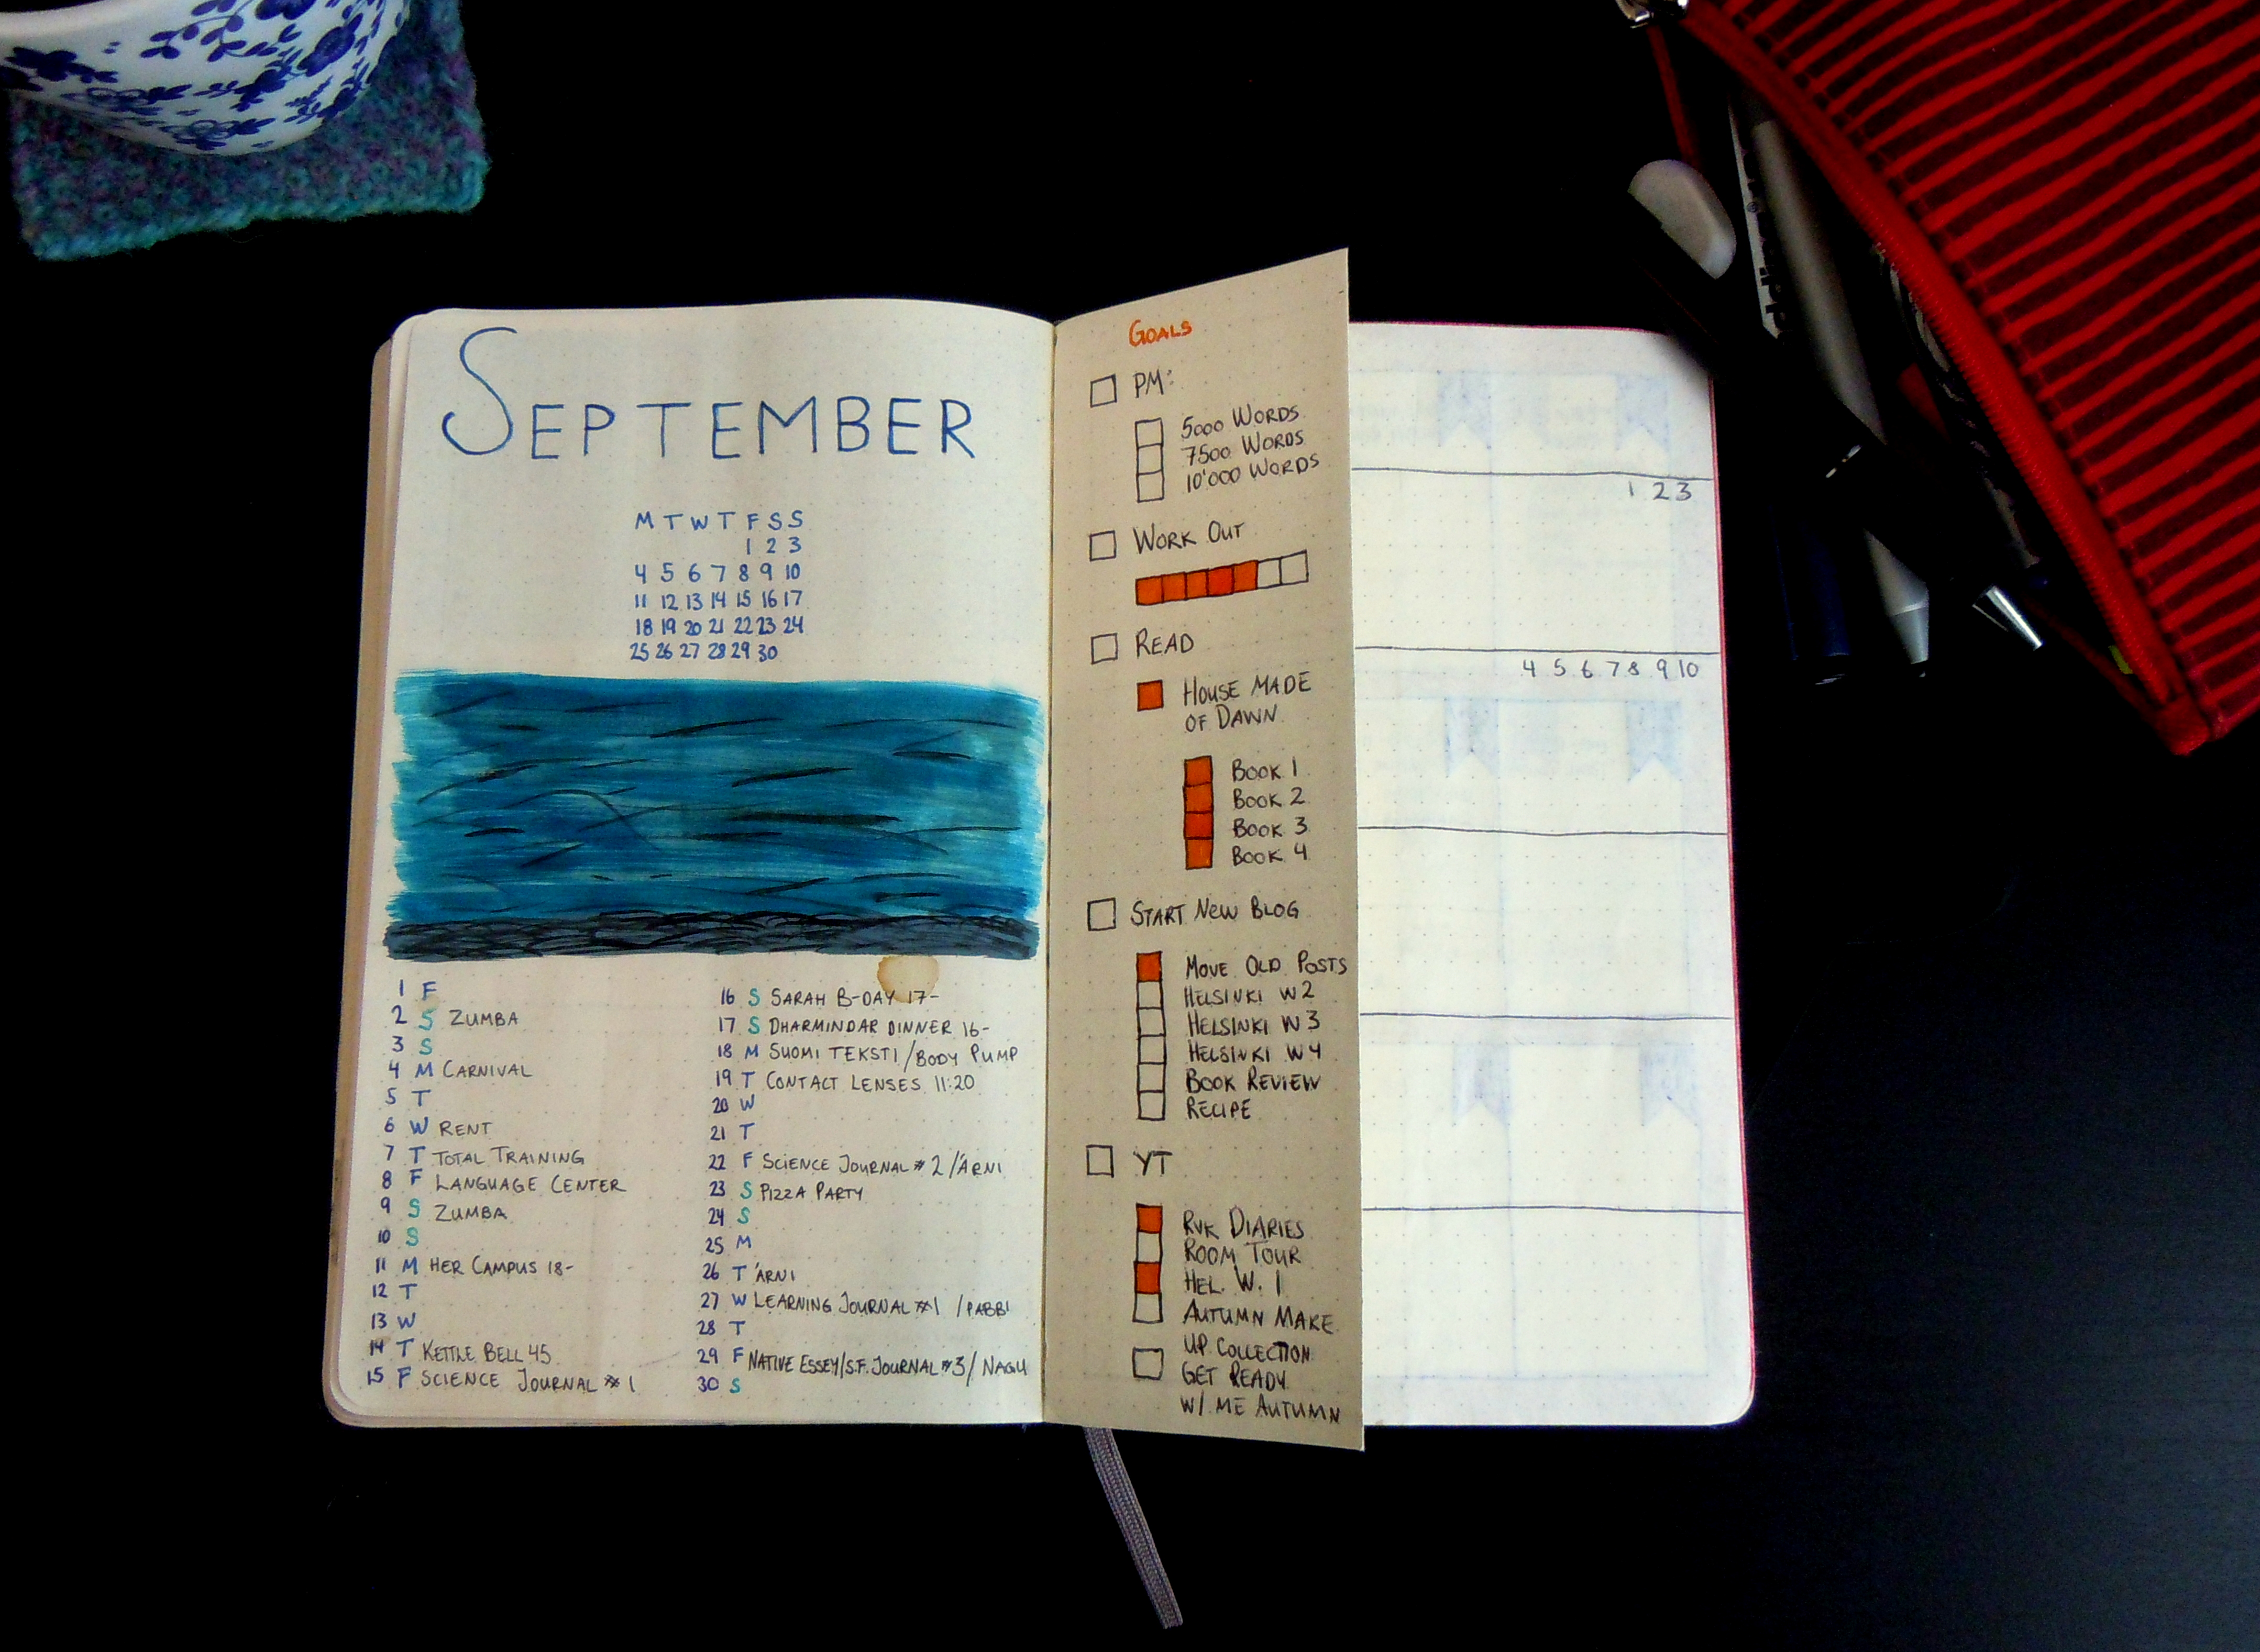 SEPTEMBER
M T W T F S S
1 2 3
4 5 6 7 8 9 10
11 12 13 14 15 16 17
18 19 20 21 22 23 24
25 26 27 28 29 30
1 F
2 S ZUMBA
3 S
4 M CARNIVAL
5 T
6 W RENT
7 T TOTAL TRAINING
8 F LANGUAGE CENTER
9 S ZUMBA
10 S
11 M HER CAMPUS 18-
12 T
13 W
14 T KETTLE BELL 45
15 F SCIENCE JOURNAL #1
16 S SARAH B-DAY 17-
17 S DHARMINDAR DINNER 16-
18 M SUOMI TEKSTI /BODY PUMP
19 T CONTACT LENSES 11:20
20 W
21 T
22 F SCIENCE JOURNAL #2 /ÁRNI
23 S PIZZA PARTY
24 S
25 M
26 T ÁRNI
27 W LEARNING JOURNAL #1 /PABBI
28 T
29 F NATIVE ESSEY/S.F. JOURNAL #3/ NAGU
30 S
GOALS
PM:
5000 WORDS
7500 WORDS
10'000 WORDS
WORK OUT
READ
HOUSE MADE
OF DAWN
BOOK 1
BOOK 2
BOOK 3
BOOK 4
START NEW BLOG
MOVE OLD POSTS
HELSINKI W2
HELSINKI W3
HELSINKI W4
BOOK REVIEW
RECIPE
YT
RVK DIARIES
ROOM TOUR
HEL. W. 1
AUTUMN MAKE
UP COLLECTION
GET READY
W/ ME AUTUMN
1 2 3
4 5 6 7 8 9 10